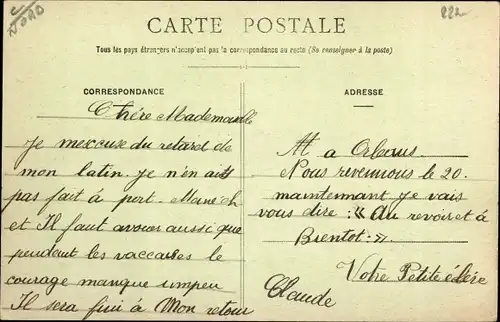 C
NORD
222
CARTE POSTALE
Tous les pays étrangers n'acceptent pas la correspondance au recto (Se renseigner à la poste)
CORRESPONDANCE
Chére Mademoiselle
Je mexcuse du retard de
mon latin. je n'en ait
pas fait à port-Mane'ch
et Il faut avouer aussi que
pendent les vaccances le
courage manque umpeu
Il sera fini à Mon retour
ADRESSE
a Orleans.
Nous revennons le 20.
maintenant Je vais
vous dire : « Au revoir et à
Bientot : ».
Votre Petite élève
Claude